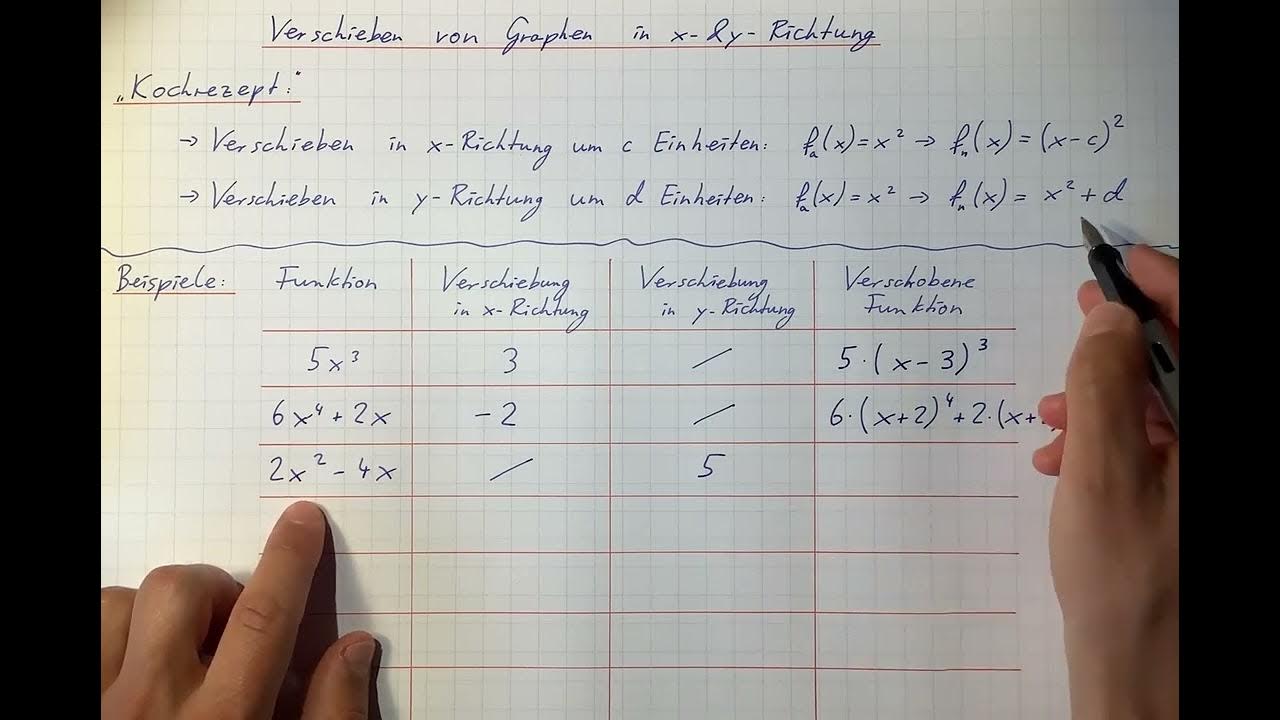 Verschieben von Graphen in x- & y-Richtung
„Kochrezept:"
→ Verschieben in x-Richtung um c Einheiten: fₐ(x)=x² → fₙ(x)=(x-c)²
→ Verschieben in y-Richtung um d Einheiten: fₐ(x)=x² → fₙ(x)= x²+d
Beispiele: Funktion Verschiebung in x-Richtung Verschiebung in y-Richtung Verschobene Funktion
5x³ 3 / 5·(x-3)³
6x⁴+2x -2 / 6·(x+2)⁴+2·(x+
2x²-4x / 5